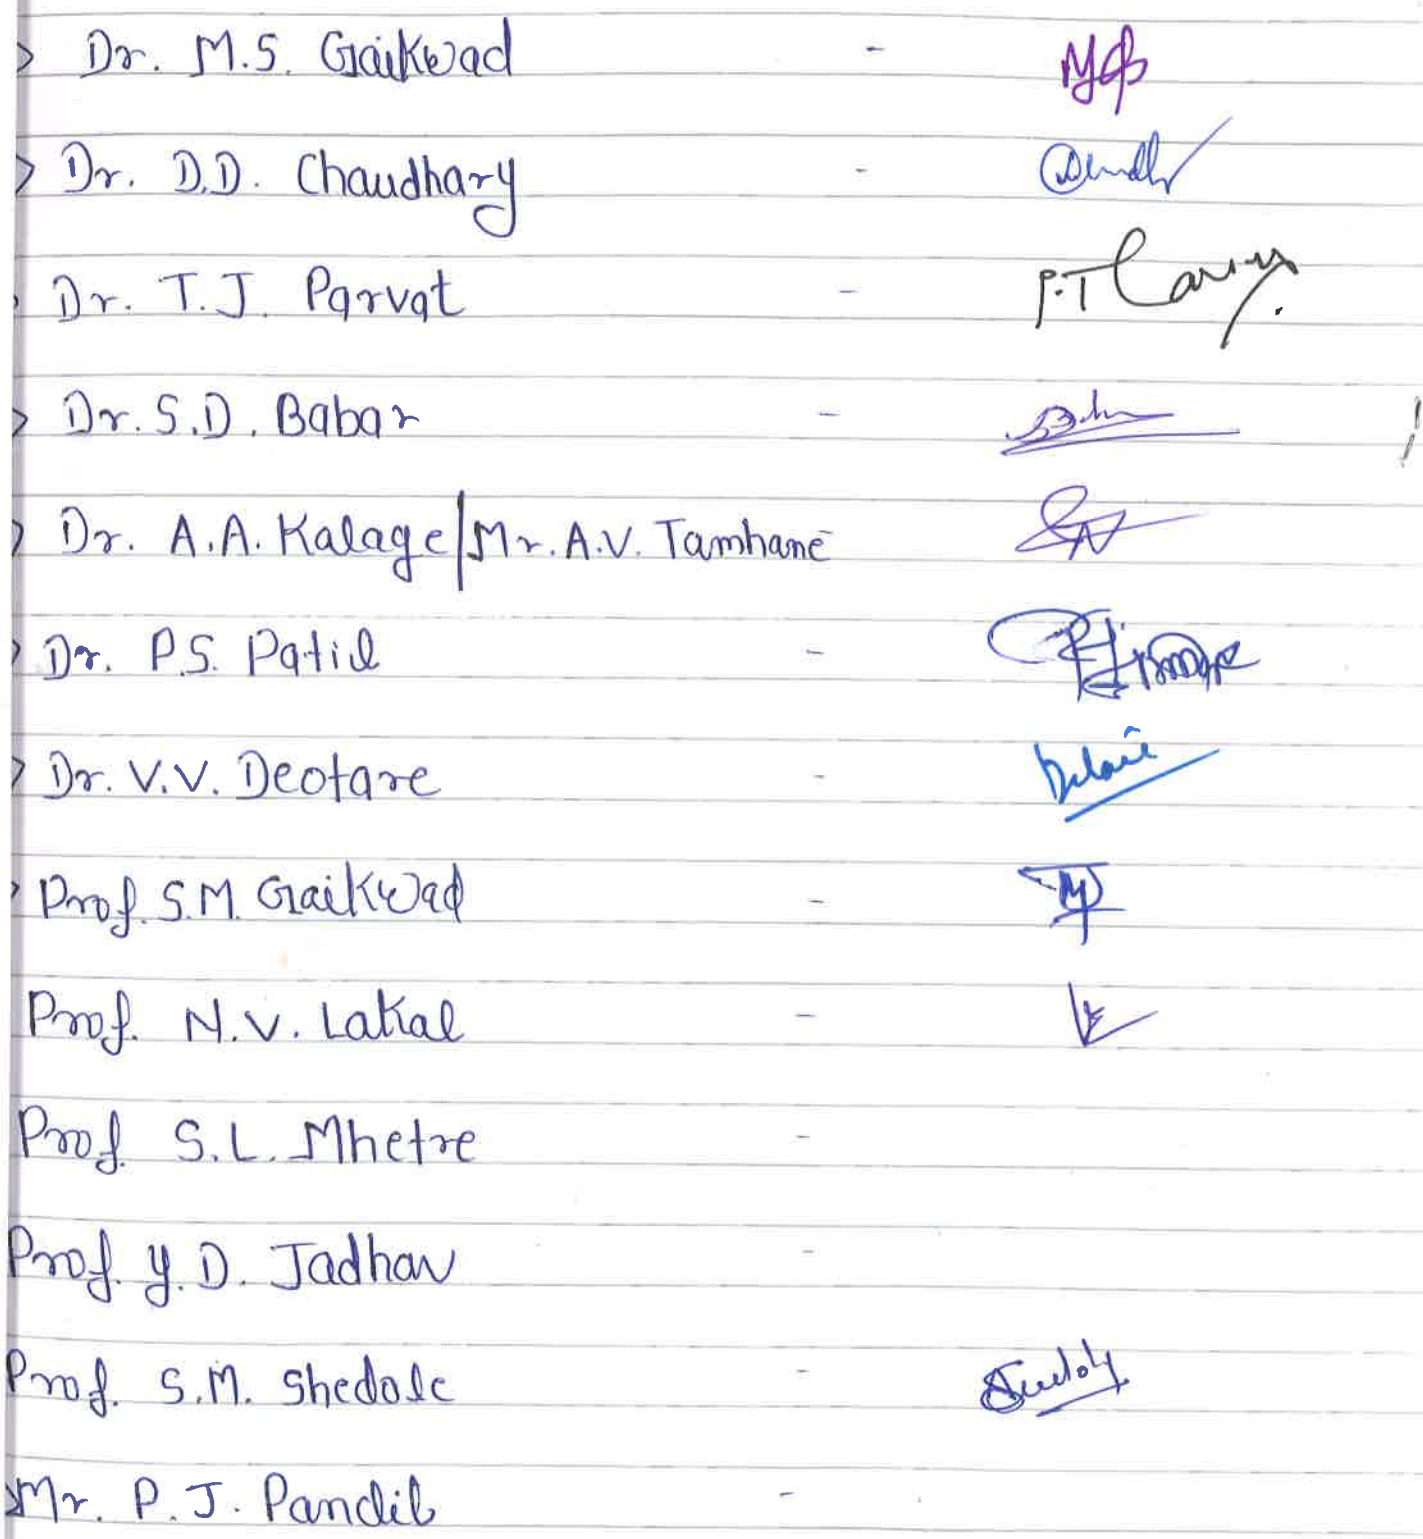 > Dr. M.S. Gaikwad -
> Dr. D.D. Chaudhary -
Dr. T.J. Parvat - P.T
> Dr. S.D. Babar -
> Dr. A.A. Kalage/Mr. A.V. Tamhane
> Dr. P.S. Patil -
> Dr. V.V. Deotare -
> Prof. S.M. Gaikwad -
Prof. N.V. Lakal -
Prof. S.L. Mhetre -
Prof. Y.D. Jadhav -
Prof. S.M. Shedole -
Mr. P.J. Pandit -